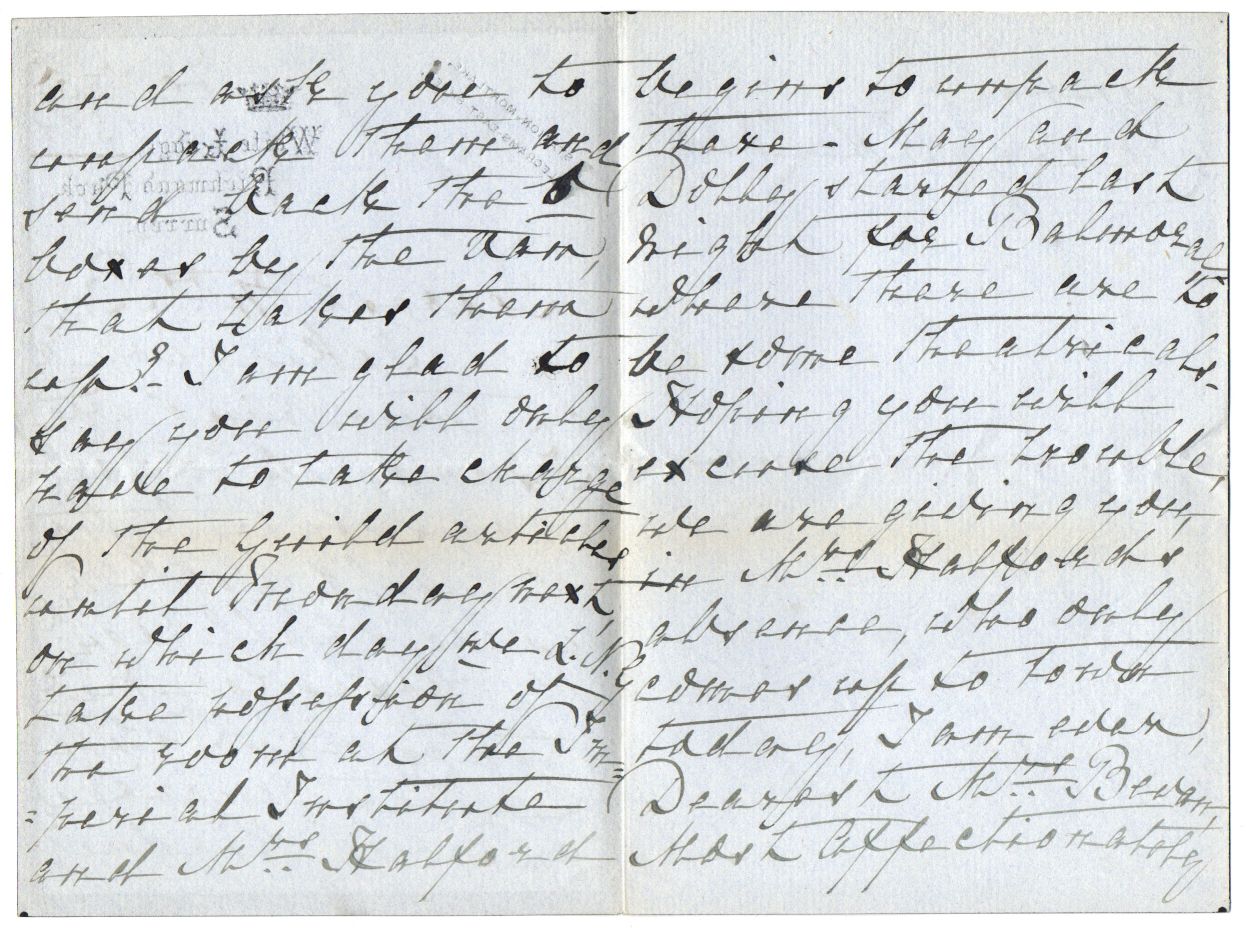 and ask you to
unpack them and
send back the 6
boxes by the Van,
that takes them
up? - I am glad to
say you will only
have to take charge
of the Guild articles
until Monday next,
on which day we L.N.G
take possession of
the room at the Im=
=perial Institute
and Mrs. Halford
begins to unpack
there - May and
Dolly started last
night for Balmoral
where there are to
be some theatricals -
Hoping you will
excuse the trouble,
we are giving you,
in Mrs. Halfords
absence, who only
comes up to town
today, I am ever,
Dearest Mrs. Bevan,
Most affectionately
White Lodge
Richmond Park
Surrey.